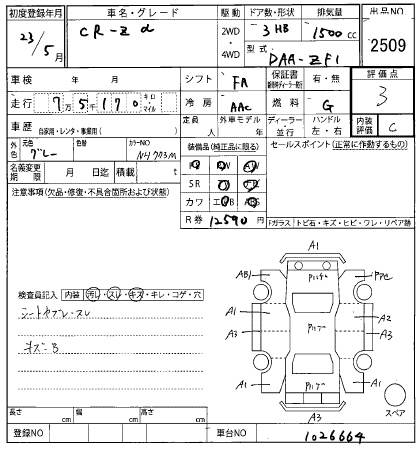 初度登録年月 車名・グレード 駆動 ドア数・形状 排気量 出品NO
23/5月 CR-Z α 2WD・4WD 3 HB 1500cc 2509
型式 DAA-ZF1
車検 年 月 シフト FA 保証書 有・無 評価点
走行 7万5千170 キロ・マイル 冷房 AAC 燃料 G 3
車歴 自家用・レンタ・事業用( ) 定員 人 外車モデル 年 ディーラー・並行 ハンドル 左・右 内装評価 C
外色 元色 グレー 色替 カラーNO NH703M 装備品(純正品に限る) セールスポイント(正常に作動するもの)
名義変更期限 月 日迄 積載 t
注意事項(欠品・修復・不具合箇所および状態) SR
カワ
R券 12590 Fガラス トビ石・キズ・ヒビ・ワレ・リペア跡
A1
AB1
A1 A2
A3 A3
A1 A1
A3
スペア
検査員記入 内装 汚レ・スレ・キズ・キレ・コゲ・穴
キズ・B
長さ cm 幅 cm 高さ cm
登録NO 車台NO 1026664